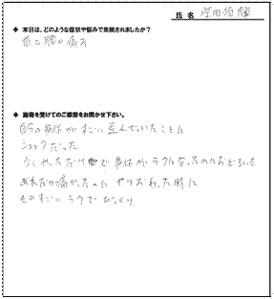 氏 名
◆ 本日は、どのような症状や悩みで来院されましたか?
首と腰の痛み
◆ 施術を受けてのご感想をお聞かせ下さい。
自分の身体がすごい歪んでいたことに
ショックだった
少しやっただけで身体がラクになったのにおどろいた
あれだけ痛かったのに やりおわった時に
ものすごいラクでびっくり